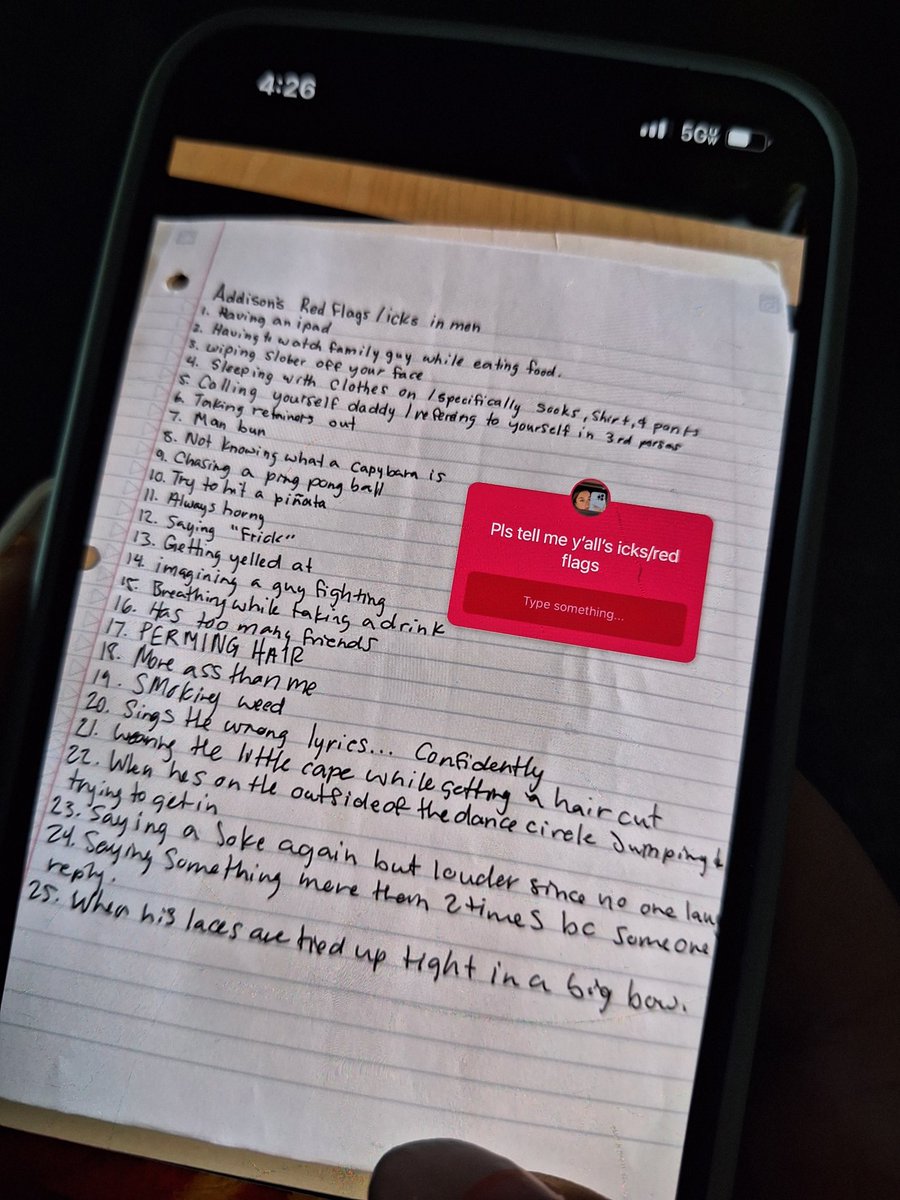 4:26
5G
Addison's Red Flags / icks in men
1. Having an ipad
2. Having to watch family guy while eating food.
3. wiping slober off your face
4. Sleeping with clothes on / specifically socks, shirt, & pants
5. Calling yourself daddy / refering to yourself in 3rd person
6. Taking retainers out
7. Man bun
8. Not knowing what a capybara is
9. Chasing a ping pong ball
10. Try to hit a piñata
11. Always horny
12. Saying "Frick"
13. Getting yelled at
14. imagining a guy fighting
15. Breathing while taking a drink
16. Has too many friends
17. PERMING HAIR
18. More ass than me
19. Smoking weed
20. Sings the wrong lyrics... Confidently
21. wearing the little cape while getting a hair cut
22. When hes on the outside of the dance circle Jumping &
trying to get in
23. Saying a Joke again but louder since no one lau
24. Saying Something more them 2 times bc someone
reply.
25. When his laces are tied up tight in a big bow.
Pls tell me y'all's icks/red
flags
Type something...